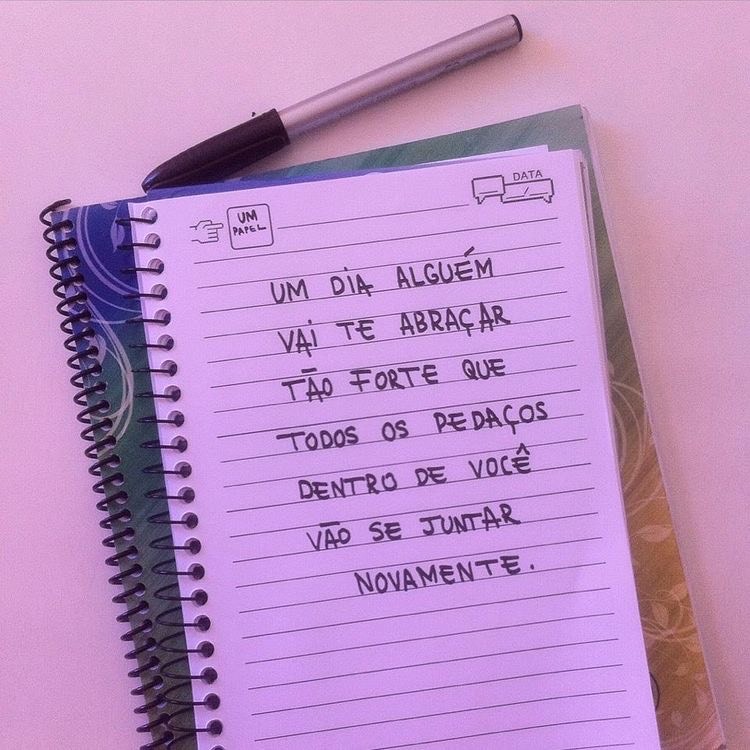 UM PAPEL
DATA
UM DIA ALGUÉM
VAI TE ABRAÇAR
TÃO FORTE QUE
TODOS OS PEDAÇOS
DENTRO DE VOCÊ
VÃO SE JUNTAR
NOVAMENTE.